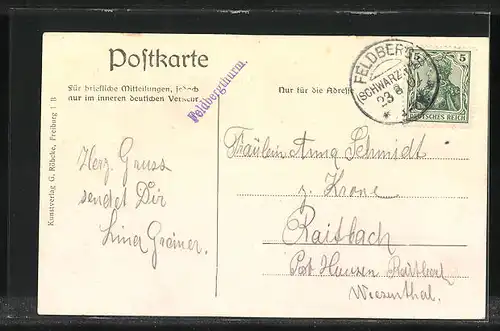 Postkarte
Für briefliche Mitteilungen, jedoch
nur im inneren deutschen Verkehr.
Feldbergthurm.
Nur für die Adresse
FELDBERG
(SCHWARZW
23 8
5 5
DEUTSCHES REICH
Kunstverlag G. Röbcke, Freiburg i B
Herz. Gruss
sendet Dir
Lina Greiner.
Fräulein Anna Schmidt
z. Krone
Raitbach
Post Hausen Raitbach
Wiesenthal.